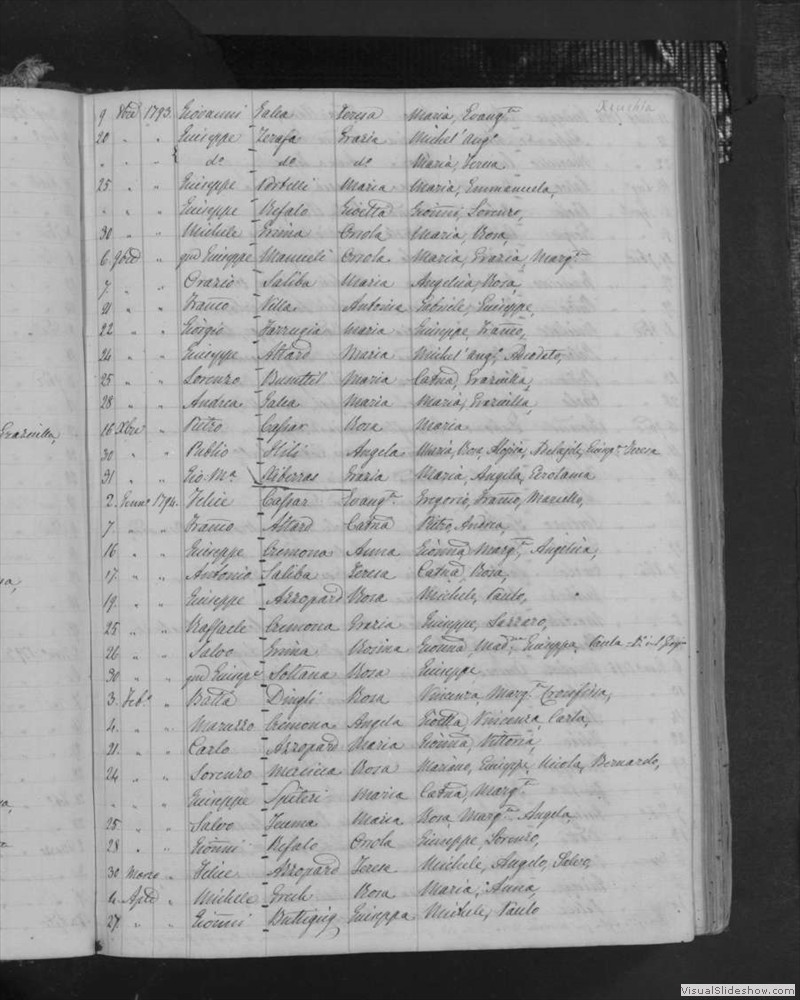 Xeuchla
9 8bre 1793. Giovanni Galea Teresa Maria, Evangta
20 " " Giuseppe Zerafa Grazia Michel'ango
" " " do do do Maria, Teresa
25 " " Giuseppe Portelli Maria Maria, Emmanuela,
" " " Giuseppe Refalo Gioetta Gionni, Lorenzo,
30 " " Michele Ermina Orsola Maria, Rosa,
6. 9bre " qm Giuseppe Mamueli Orsola Maria, Grazia, Margta
7 " " Orazio Saliba Maria Angelica, Rosa,
21 " " Franco Villa Antonia Gabriele, Giuseppe,
22 " " Giorgio Farrugia Maria Giuseppe, Franco,
24 " " Giuseppe Attard Maria Michel'ango, Deodato,
25 " " Lorenzo Busuttil Maria Catna, Grazulla,
28 " " Andrea Galea Maria Maria, Grazulla,
16 Xbre " Pietro Cassar Rosa Maria
30 " " Publio Hili Angela Maria, Rosa, Aloisia, Teresa
31 " " Gio Ma Riberras Grazia Maria, Angela, Gerolama
2. Genno 1794. Felice Cassar Evangta Gregorio, Franco, Marcello,
7 " " Franco Attard Catna Pietro, Andrea,
16 " " Giuseppe Cremona Anna Gionna, Margta, Angelica,
17. " " Antonio Saliba Teresa Catna, Rosa,
19. " " Giuseppe Azzopard Rosa Michele, Paolo,
25 " " Raffaele Cremona Grazia Giuseppe, Lazzaro,
26 " " Salvo Rosina Gionna, Giuseppa, Paola
30 " " qm Giuseppe Soltana Rosa Giuseppe
3. Febo " Batta Dingli Rosa Vincenza, Margta, Crocifissa,
4. " " Maruzzo Cremona Angela Gioetta, Vincenza, Carla,
21. " " Carlo Azzopard Maria Gionna, Vittoria,
24 " " Lorenzo Mercieca Rosa Mariano, Giuseppe, Nicola, Bernardo,
" " " Giuseppe Spiteri Maria Catna, Margta
25. " " Salvo Maria Rosa, Margta, Angela,
28. " " Gionni Refalo Orsola Giuseppe, Lorenzo,
30 Marzo " Felice Azzopard Teresa Michele, Angelo, Salvo,
4 Aple " Michele Grech Rosa Maria, Anna,
27. " " Gionni Buttigieg Giuseppa Michele, Paolo
Grazulla,
VisualSlideshow.com